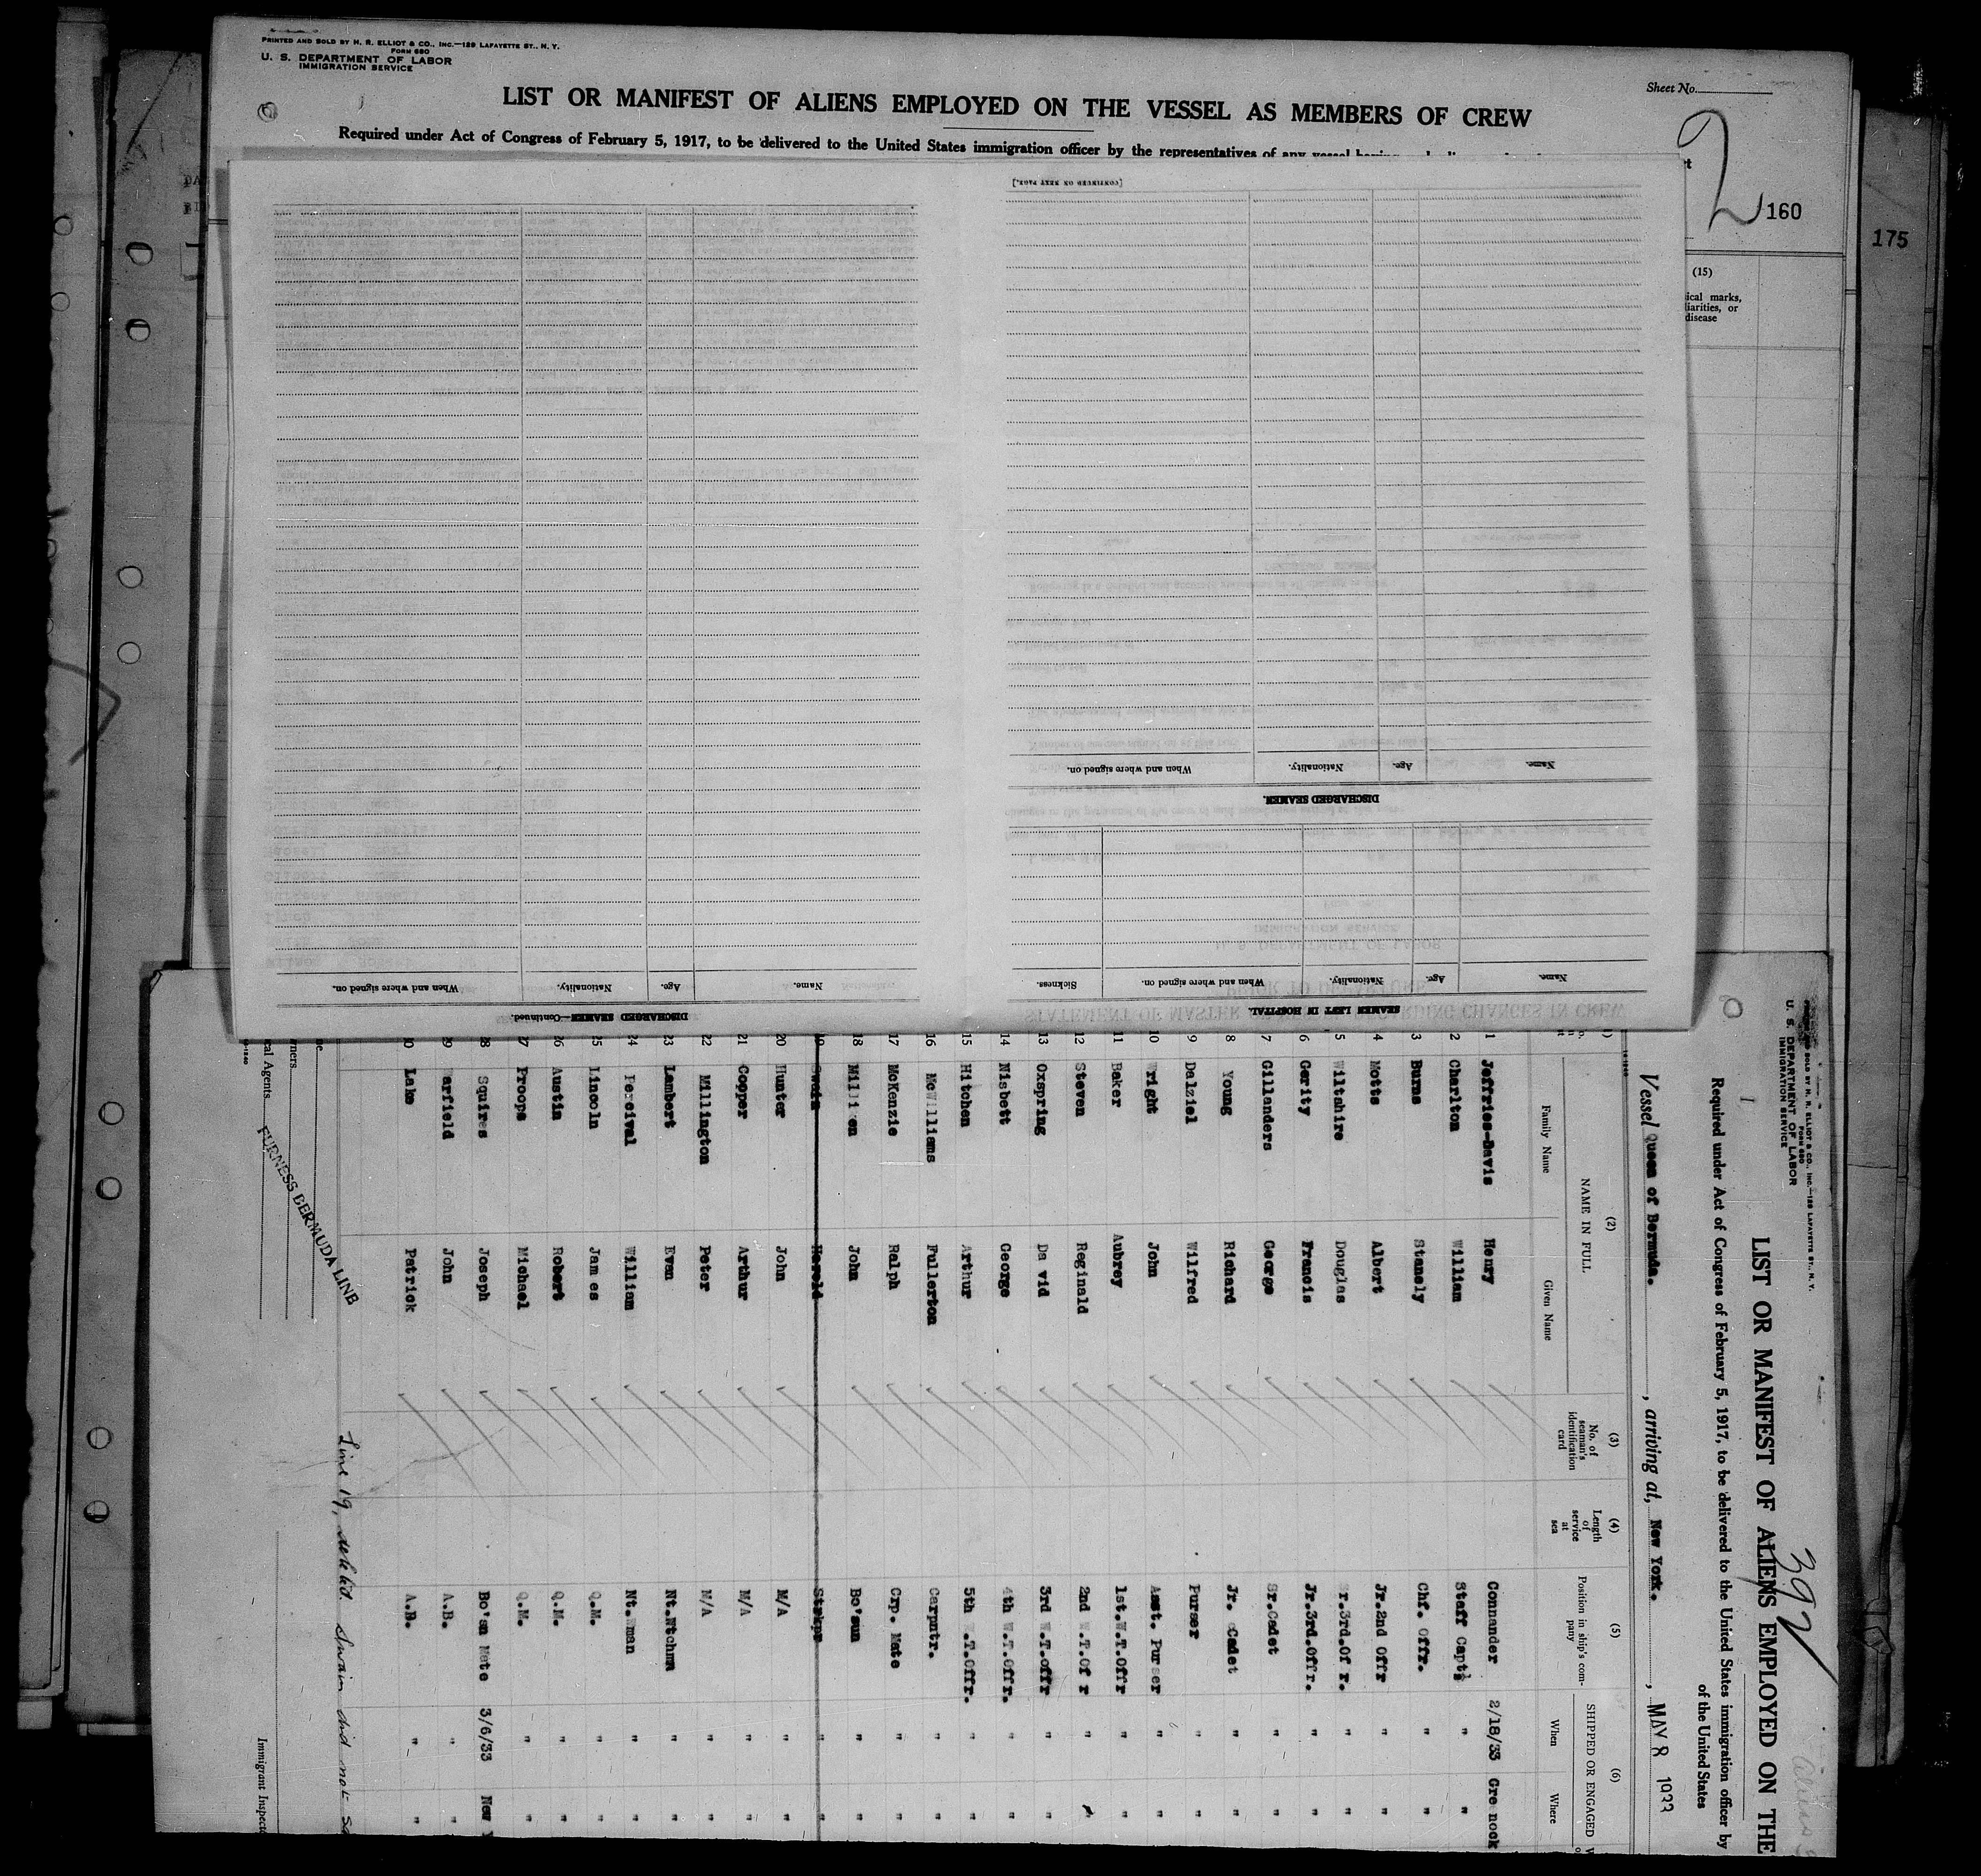 PRINTED AND SOLD BY H. R. ELLIOT & CO., INC.—129 LAFAYETTE ST., N. Y.
FORM 680
U. S. DEPARTMENT OF LABOR
IMMIGRATION SERVICE
Sheet No.
LIST OR MANIFEST OF ALIENS EMPLOYED ON THE VESSEL AS MEMBERS OF CREW
Required under Act of Congress of February 5, 1917, to be delivered to the United States immigration officer by the representatives of any vessel
2
160
175
(15)
ical marks,
liarities, or
disease
[CONTINUED ON NEXT PAGE.]
Name. Age. Nationality. When and where signed on.
DISCHARGED SEAMEN.
Name. Age. Nationality. When and where signed on. Sickness.
SEAMEN LEFT IN HOSPITAL.
Name. Age. Nationality. When and where signed on.
DISCHARGED SEAMEN—Continued.
STATEMENT OF MASTER
CHANGES IN CREW
PRINTED AND SOLD BY H. R. ELLIOT & CO., INC.—129 LAFAYETTE ST., N. Y.
FORM 680
U. S. DEPARTMENT OF LABOR
IMMIGRATION SERVICE
392
LIST OR MANIFEST OF ALIENS EMPLOYED ON THE
1
Required under Act of Congress of February 5, 1917, to be delivered to the United States immigration officer by
of the United States
Vessel Queen of Bermuda. , arriving at, New York. , MAY 8 1933
(2) (3) (4) (5) (6)
NAME IN FULL
Family Name Given Name
No. of seaman's identification card
Length of service at sea
Position in ship's company
SHIPPED OR ENGAGED
When Where
1 Jeffries-Davis Henry Commander 2/18/33 Gre nock
2 Charlton William Staff Capt. " "
3 Burns Stanely Chf. Offr. " "
4 Motts Albert Jr.2nd Offr " "
5 Wiltshire Douglas Sr.3rd.Of r. " "
6 Gerity Francis Jr.3rd.Offr. " "
7 Gillanders George Sr.Cadet " "
8 Young Richard Jr. Cadet " "
9 Dalziel Wilfred Purser " "
10 Wright John Asst. Purser " "
11 Baker Aubrey 1st.W.T.Offr " "
12 Steven Reginald 2nd W.T.Of r " "
13 Oxspring Da vid 3rd W.T.Offr " "
14 Nisbett George 4th W.T.Offr. " "
15 Hitchen Arthur 5th W.T.Offr. " "
16 McWilliams Fullerton Carpntr. " "
17 McKenzie Ralph Crp. Mate " "
18 Milliken John Bo'sun " "
19 Swain Harold Strkpr " "
20 Hunter John M/A " "
21 Copper Arthur M/A " "
22 Millington Peter M/A " "
23 Lambert Evan Nt.Wtchmn " "
24 Percival William Nt.Wman " "
25 Lincoln Jam es Q.M. " "
26 Austin Robert Q.M. " "
27 Proops Michael Q.M. " "
28 Squires Joseph Bo'sn Mate 3/6/33 New
29 Warfield John A.B. " "
30 Lake Patrick A.B. " "
Line 19, deleted. Swain did not
FURNESS BERMUDA LINE
ners
cal Agents
Immigrant Inspecto